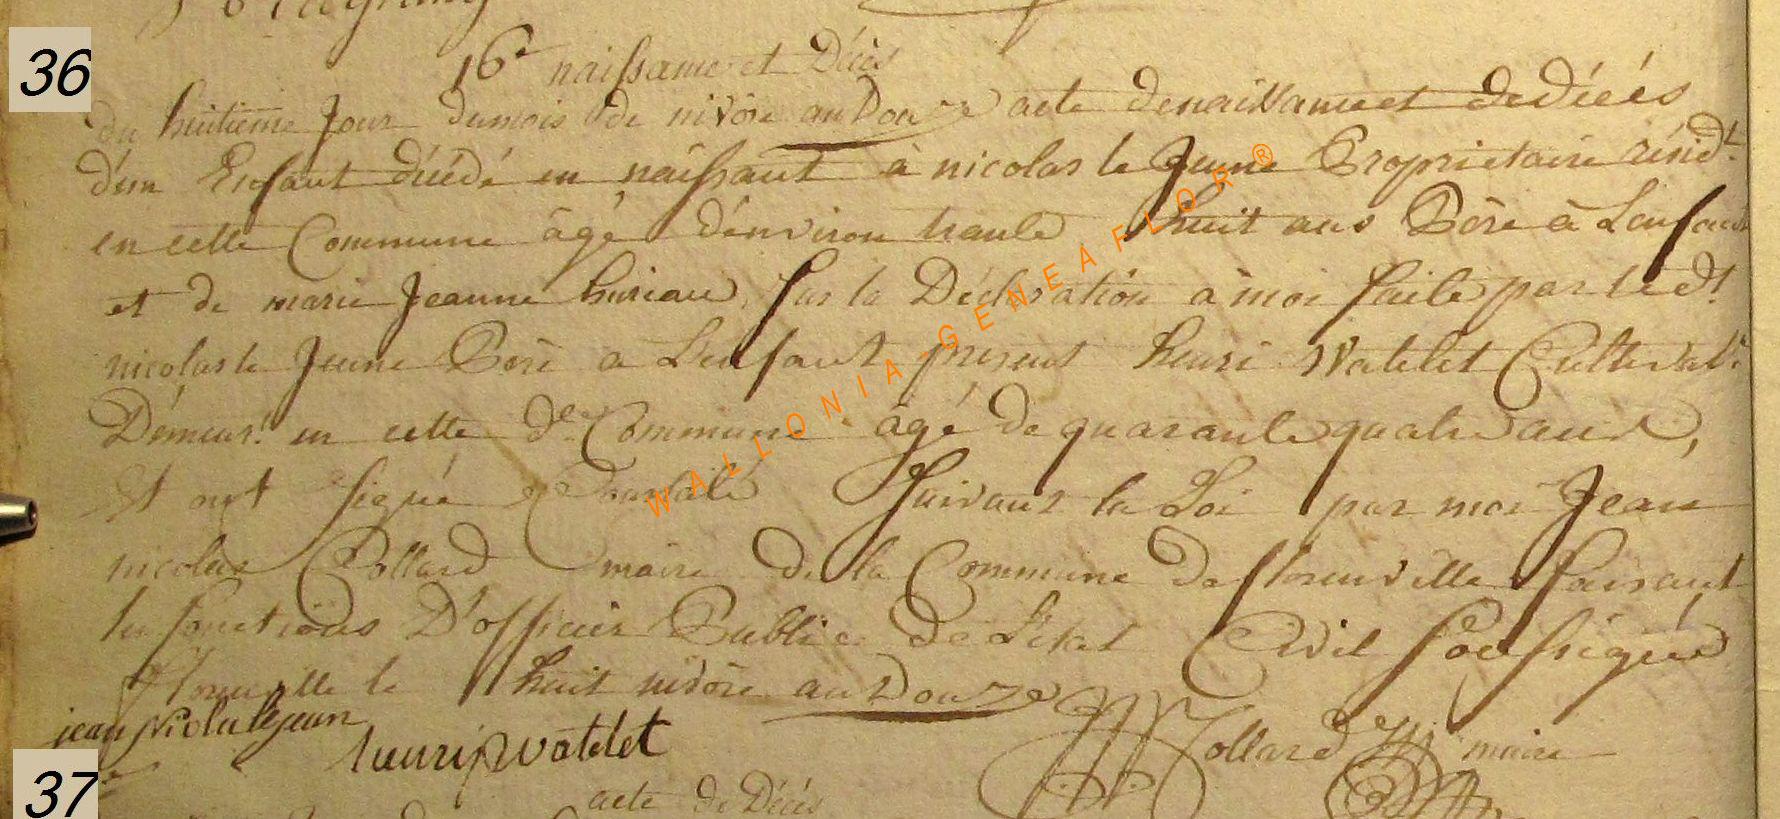 36
16e naissance et Décès
du huitieme Jour dumois de nivôse an Douze acte denaissance et dedécés
d'un Enfant décédé en naissant à nicolas le Jeune Proprietaire résidt.
en cette Commune âgé d'environ trante huit ans Pére à Lenfant
et de marie Jeanne huriau, sur la Déclaration à moi faite par le dt.
nicolas le Jeune Pere a Lenfant present henri Watelet Cultivatr.
Démeurt. en cette de. Commune âgé de quarante quatre ans,
Et ont signé Constaté Suivant la Loi par moi Jean
nicolas Collard maire de la Commune de florenville faisant
les fonctions D'officier Public de L'état Civil Soussigné
florenville le huit nivôse an Douze
jean Nicola lejeun
henri watelet
Collard maire
37
acte de Décés
WALLONIA-GENEAFLOR®